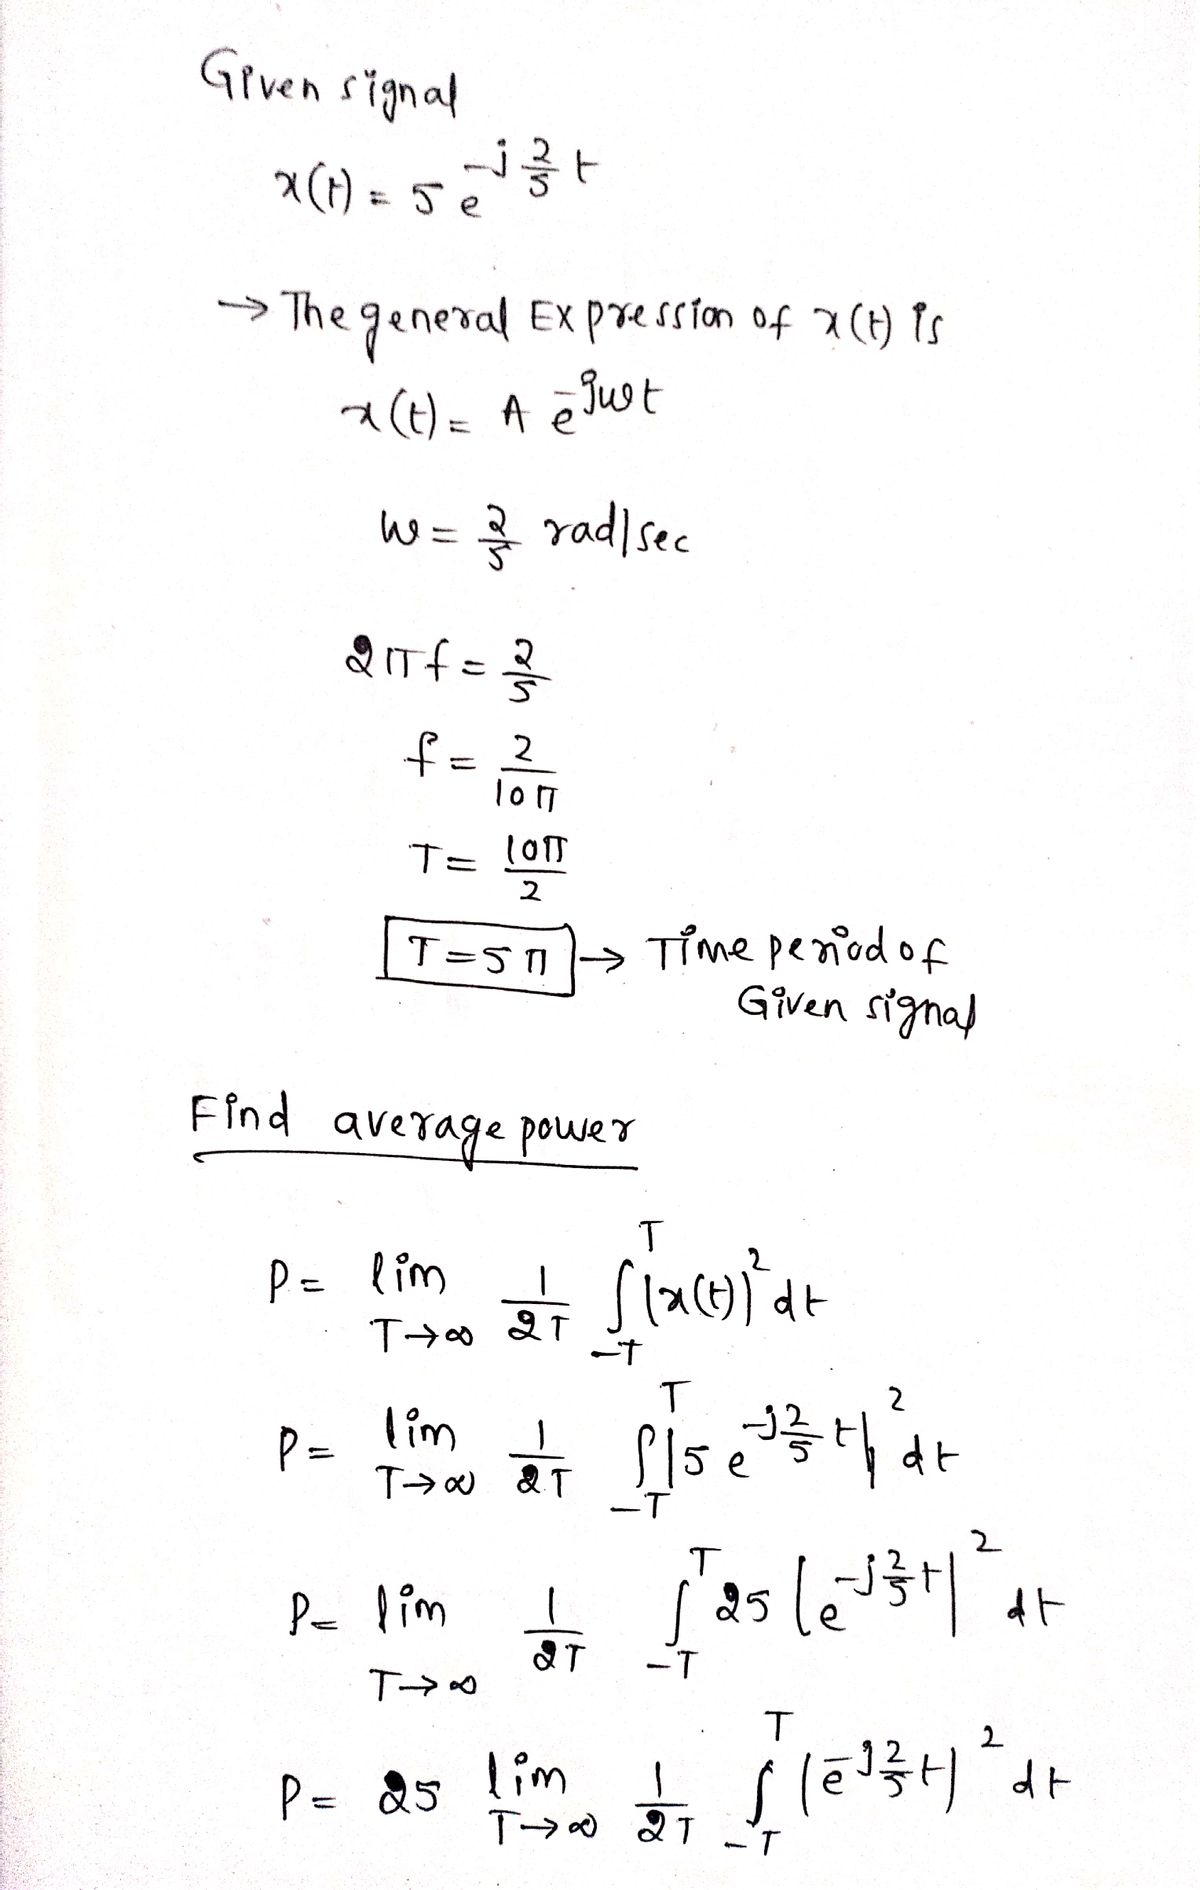 Given signal
x(t) = 5 e^{-j 2/5 t}
→ The general Expression of x(t) is
x(t) = A e^{-jωt}
ω = 2/5 rad/sec
2πf = 2/5
f = 2/10π
T = 10π/2
T = 5π → Time period of
Given signal
Find average power
P = lim T→∞ 1/2T ∫_{-T}^{T} |x(t)|² dt
P = lim T→∞ 1/2T ∫_{-T}^{T} |5 e^{-j 2/5 t}|² dt
P = lim T→∞ 1/2T ∫_{-T}^{T} 25 |e^{-j 2/5 t}|² dt
P = 25 lim T→∞ 1/2T ∫_{-T}^{T} |e^{-j 2/5 t}|² dt